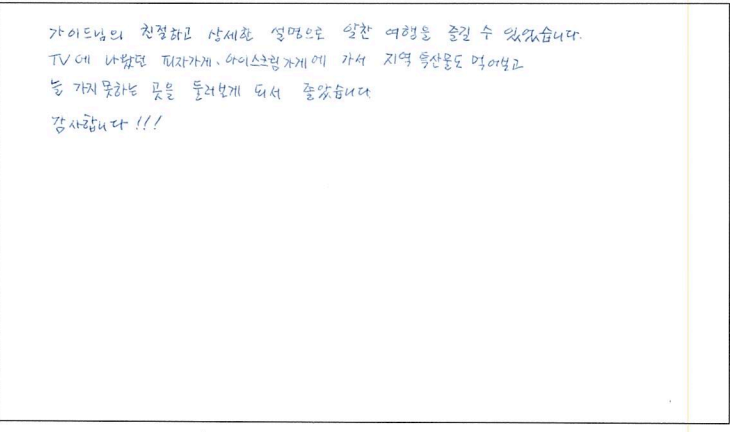 가이드님의 친절하고 상세한 설명으로 알찬 여행을 즐길 수 있었습니다.
TV에 나왔던 피자가게, 아이스크림가게에 가서 지역 특산물도 먹어보고
늘 가지못하는 곳을 둘러보게 되서 좋았습니다
감사합니다!!!